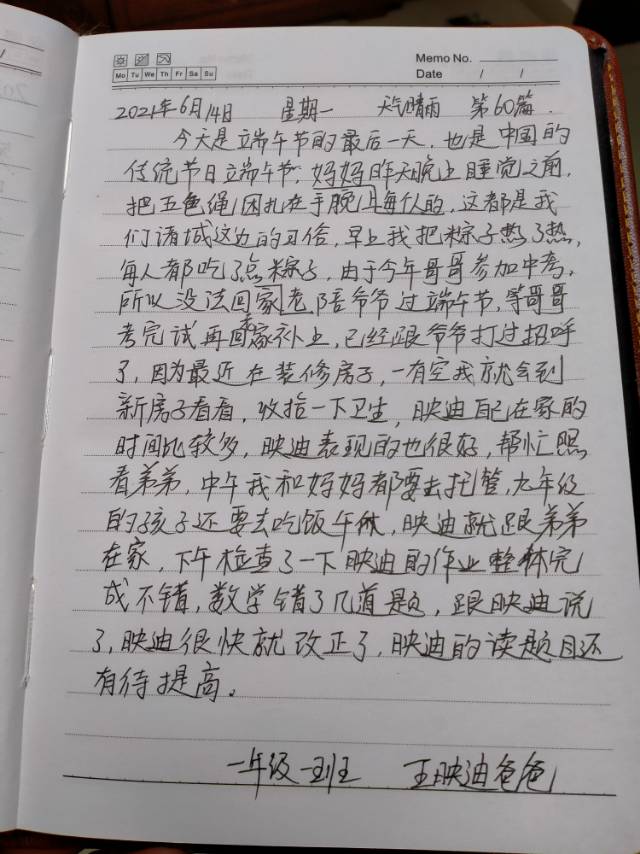 Memo No.
Mo Tu We Th Fr Sa Su
Date / /
2021年6月14日 星期一 天气晴雨 第60篇.
今天是端午节的最后一天，也是中国的
传统节日端午节，妈妈昨天晚上睡觉之前，
把五色绳困扎在手腕上每个人的，这都是我
们诸城这边的习俗，早上我把粽子热了热，
每人都吃了点粽子，由于今年哥哥参加中考，
所以没法回家老，陪爷爷过端午节，等哥哥
考完试再回老家补上，已经跟爷爷打过招呼
了，因为最近在装修房子，一有空我就会到
新房子看看，收拾一下卫生，映迪自己在家的
时间比较多，映迪表现的也很好，帮忙照
看弟弟，中午我和妈妈都要去托管，九年级
的孩子还要去吃饭午休，映迪就跟弟弟
在家，下午检查了一下映迪的作业整体完
成不错，数学错了几道题，跟映迪说
了，映迪很快就改正了，映迪的读题目还
有待提高。
一年级一班 王映迪爸爸